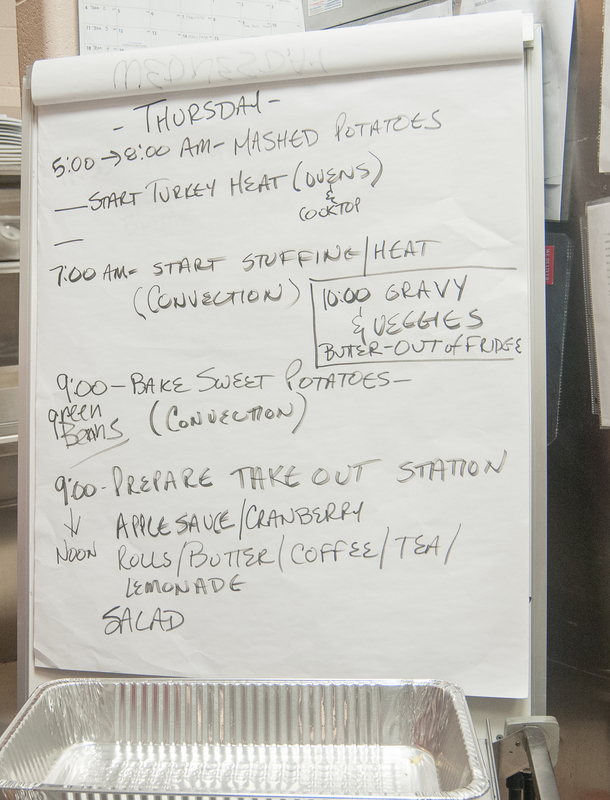 WEDNESDAY
- THURSDAY -
5:00 → 8:00 AM - MASHED POTATOES
— START TURKEY HEAT (OVENS)
&
COOKTOP
—
7:00 AM - START STUFFING/HEAT
(CONVECTION)
10:00 GRAVY
& VEGGIES
BUTTER-OUT of FRIDGE
9:00 - BAKE SWEET POTATOES -
green
Beans
(CONVECTION)
9:00 - PREPARE TAKE OUT STATION
↓
NOON
APPLESAUCE/CRANBERRY
ROLLS/BUTTER/COFFEE/TEA/
LEMONADE
SALAD